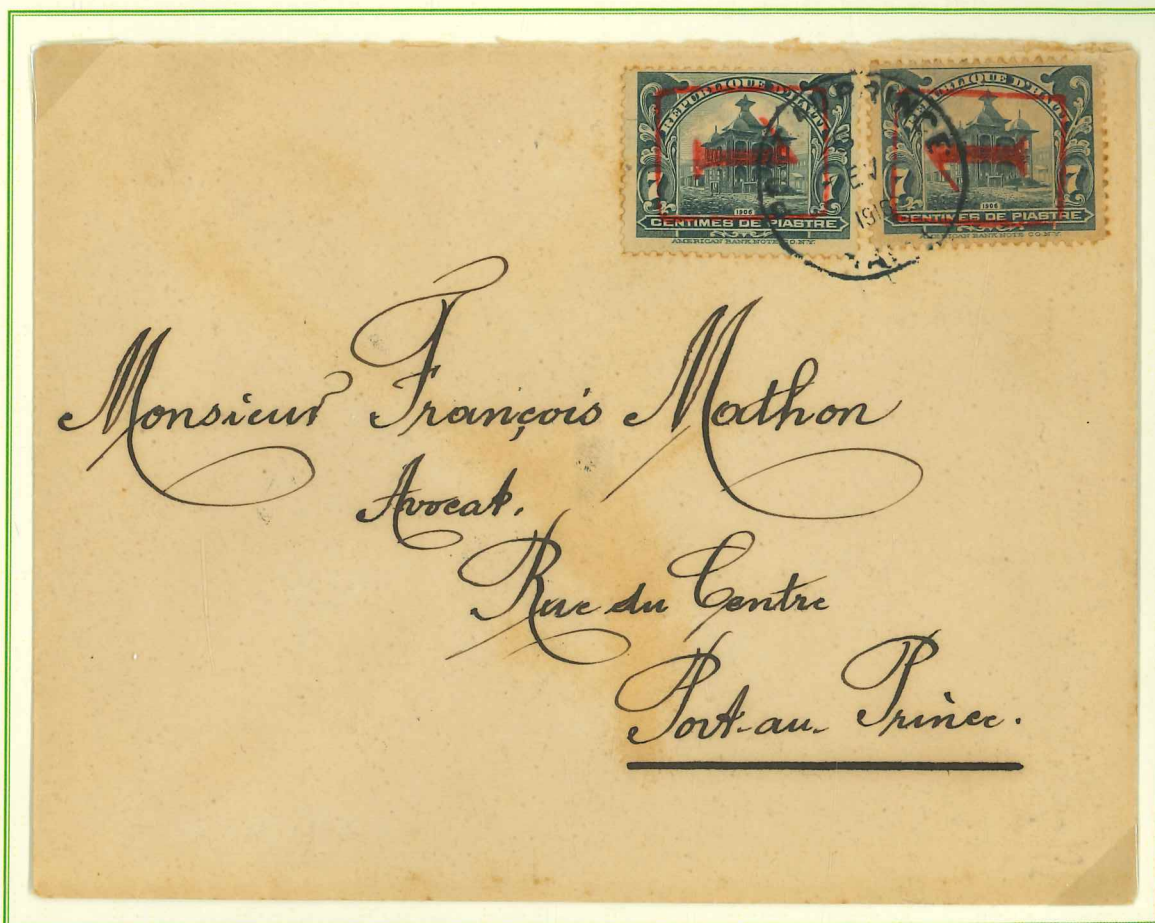 REPUBLIQUE D'HAITI
1
7 7
1906
CENTIMES DE PIASTRE
AMERICAN BANK NOTE CO. N.Y.
REPUBLIQUE D'HAITI
1
7 7
1906
CENTIMES DE PIASTRE
AMERICAN BANK NOTE CO. N.Y.
AU PRINCE
Monsieur François Mathon
Avocat.
Rue du Centre
Port-au-Prince.